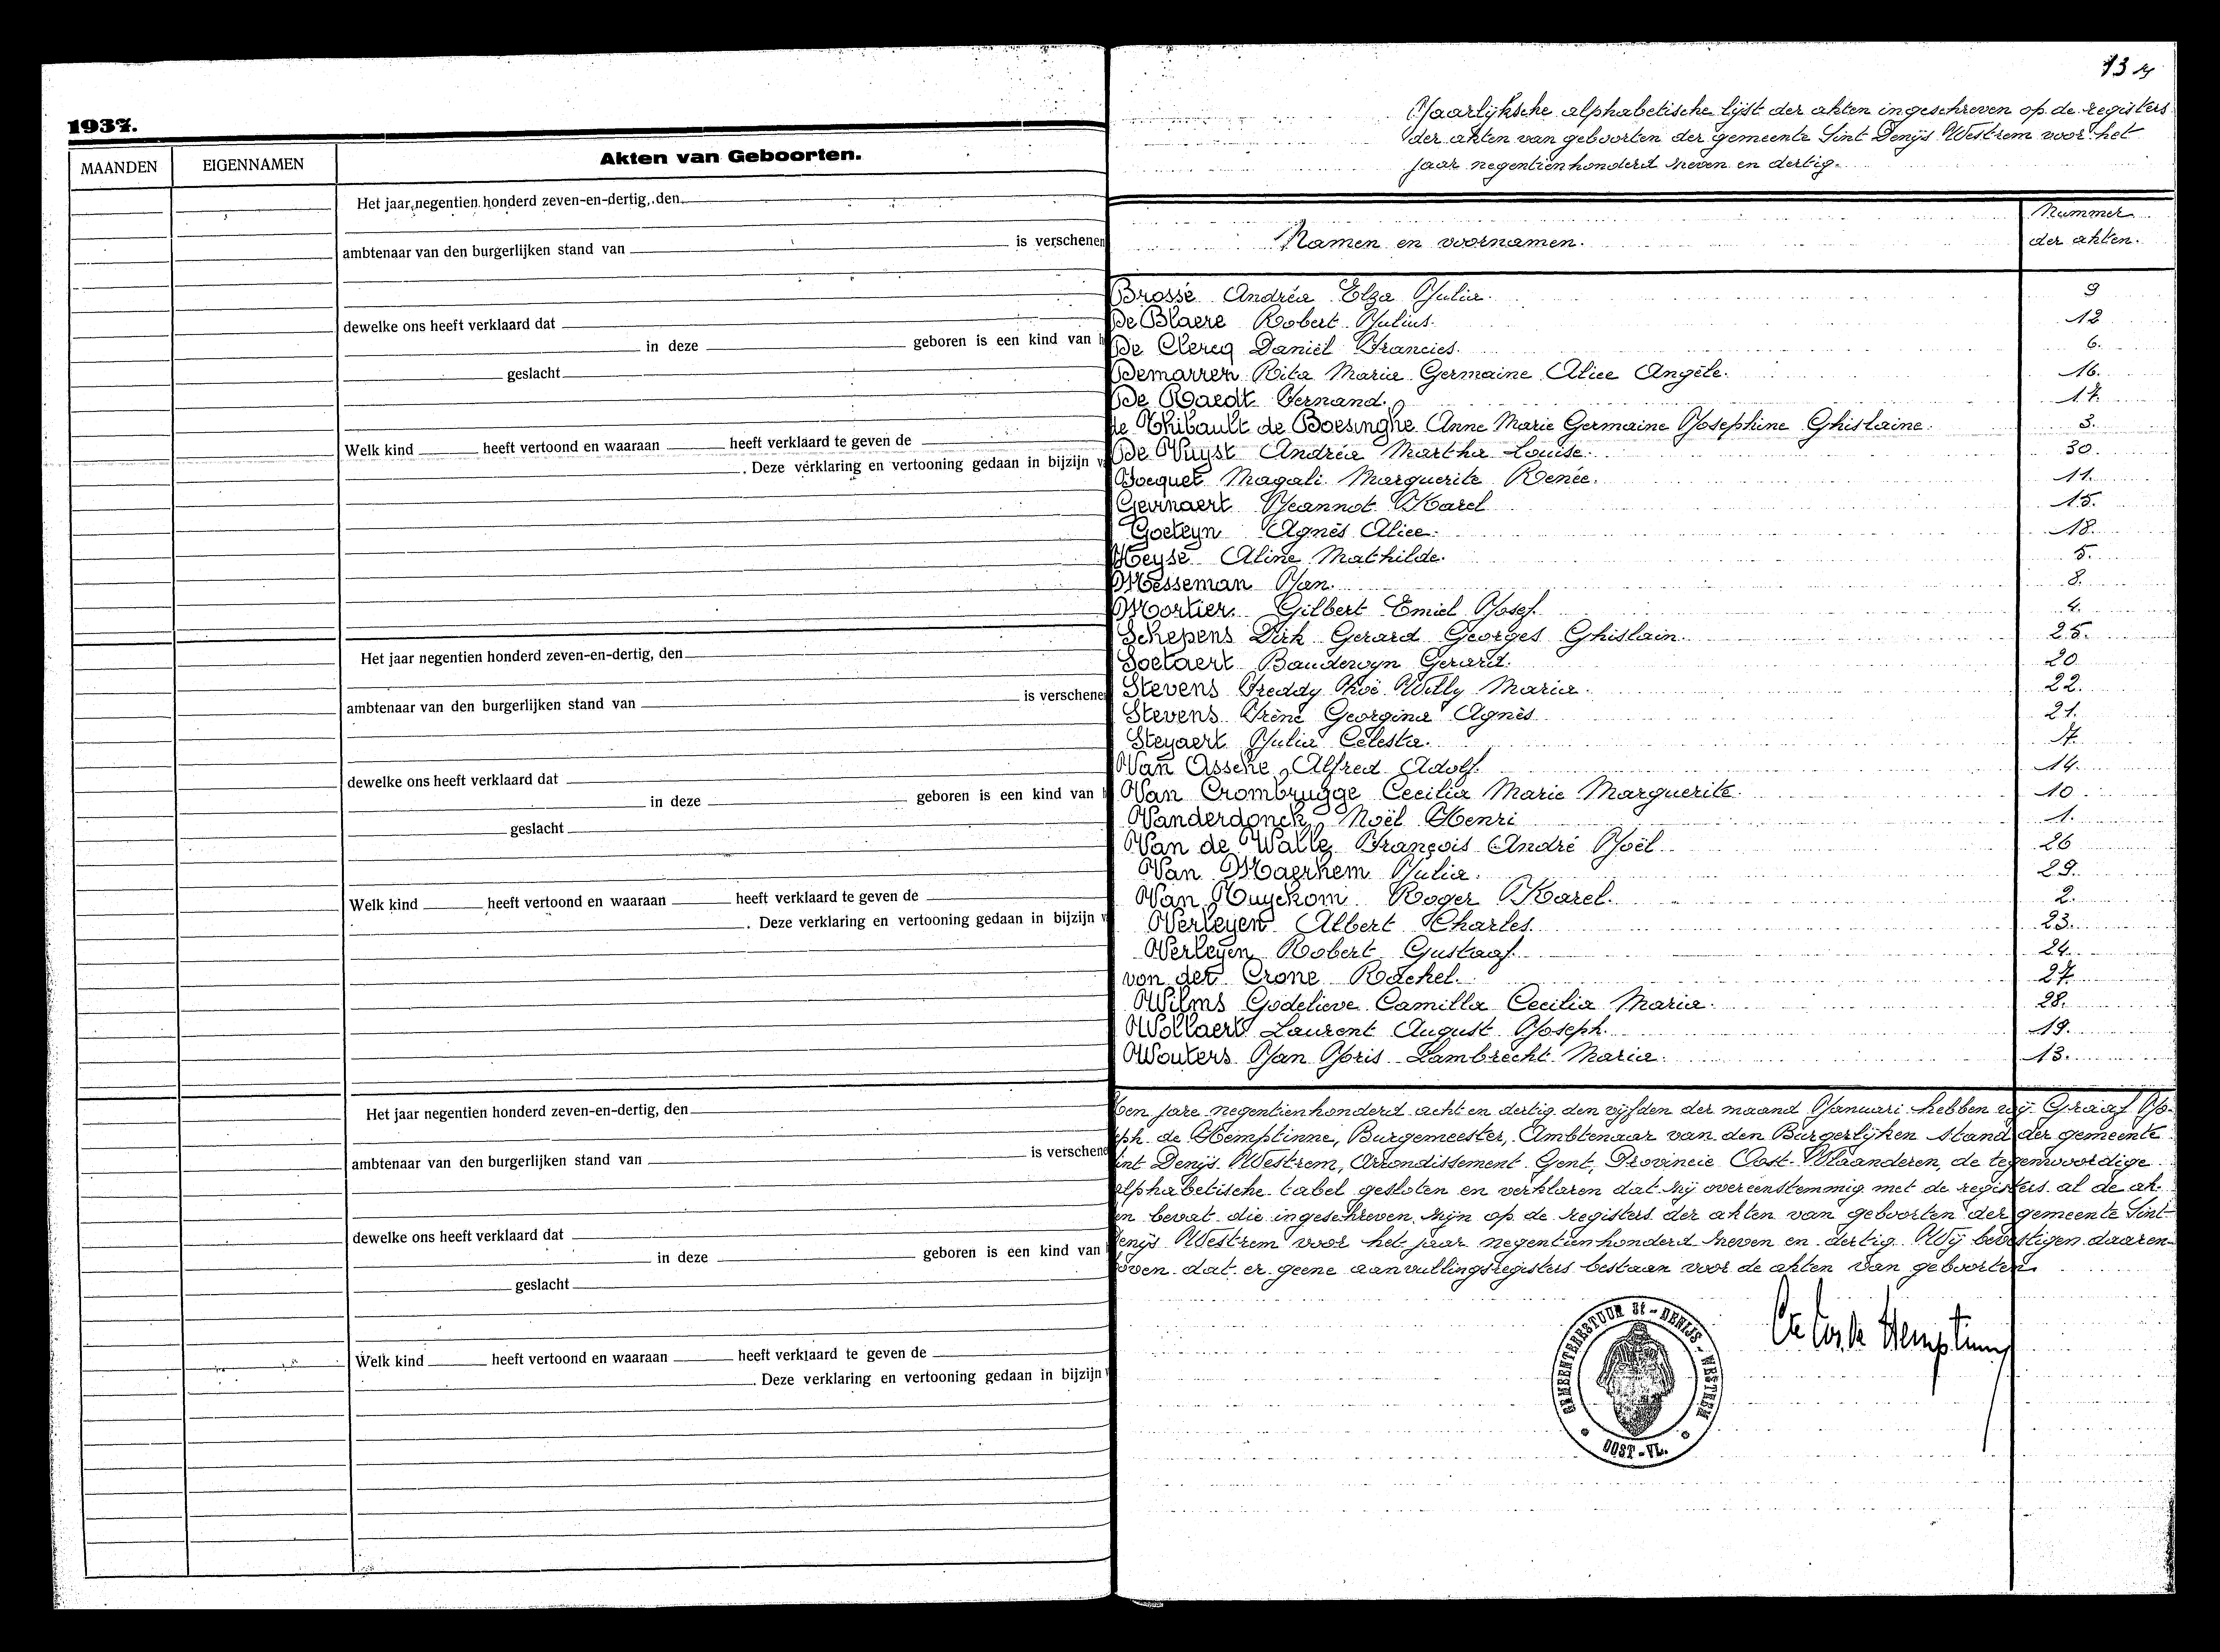 1937.
MAANDEN
EIGENNAMEN
Akten van Geboorten.
Het jaar negentien honderd zeven-en-dertig, den
ambtenaar van den burgerlijken stand van is verschenen
dewelke ons heeft verklaard dat
in deze geboren is een kind van h
geslacht
Welk kind heeft vertoond en waaraan heeft verklaard te geven de
. Deze verklaring en vertooning gedaan in bijzijn v
Het jaar negentien honderd zeven-en-dertig, den
ambtenaar van den burgerlijken stand van is verschene
dewelke ons heeft verklaard dat
in deze geboren is een kind van h
geslacht
Welk kind heeft vertoond en waaraan heeft verklaard te geven de
. Deze verklaring en vertooning gedaan in bijzijn v
Het jaar negentien honderd zeven-en-dertig, den
ambtenaar van den burgerlijken stand van is verschene
dewelke ons heeft verklaard dat
in deze geboren is een kind van
geslacht
Welk kind heeft vertoond en waaraan heeft verklaard te geven de
. Deze verklaring en vertooning gedaan in bijzijn
13
Jaarlijksche alphabetische lijst der akten ingeschreven op de registers
der akten van geboorten der gemeente Sint Denijs Westrem voor het
jaar negentienhonderd zeven en dertig.
Namen en voornamen. Nummer der akten.
Brosse Andréa Elza Julia. 9
De Blaere Robert Julius. 12
De Clercq Daniël Francies. 6.
Demarrez Rita Maria Germaine Alice Angèle. 16.
De Raedt Fernand. 17.
de Thibault de Boesinghe Anne Marie Germaine Josephine Ghislaine. 3.
De Vuyst Andréa Martha Louise. 30.
Docquet Magali Marguerite Renée. 11.
Gevinaert Jeannot Karel 15.
Goeteyn Agnès Alice. 18.
Heyse Aline Mathilde. 5.
Messeman Jan. 8.
Mortier Gilbert Emiel Josef. 4.
Schepens Dirk Gerard Georges Ghislain. 25.
Soetaert Baudewyn Gerard. 20
Stevens Freddy Willy Maria. 22.
Stevens Irène Georgina Agnès 21.
Steyaert Julia Celesta. 7.
Van Assche Alfred Adolf. 14.
Van Crombrugge Cecilia Marie Marguerite. 10
Vanderdonck Noël Henri 1.
Van de Walle François André Joël 26
Van Maerkem Julia. 29.
Van Huyckom Roger Karel. 2.
Verleyen Albert Charles. 23.
Verleyen Robert Gustaaf. 24.
von der Crone Rachel. 27.
Wilms Godelieve Camilla Cecilia Maria. 28.
Wollaert Laurent August Joseph. 19.
Wouters Jan Joris Lambrecht Maria. 13.
Ten jare negentienhonderd acht en dertig den vijfden der maand Januari hebben wij Graaf Jo-
seph de Hemptinne, Burgemeester, Ambtenaar van den Burgerlijken stand der gemeente
Sint Denijs Westrem, Arrondissement Gent, Provincie Oost-Vlaanderen, de tegenwoordige
alphabetische tabel gesloten en verklaren dat zij overeenstemmig met de registers al de ak-
ten bevat die ingeschreven zijn op de registers der akten van geboorten der gemeente Sint
Denijs Westrem voor het jaar negentienhonderd zeven en dertig. Wij bevestigen daaren-
boven dat er geene aanvullingsregisters bestaan voor de akten van geboorten.
GEMEENTEBESTUUR St-DENIJS-WESTREM
OOST-VL.
de Hemptinne